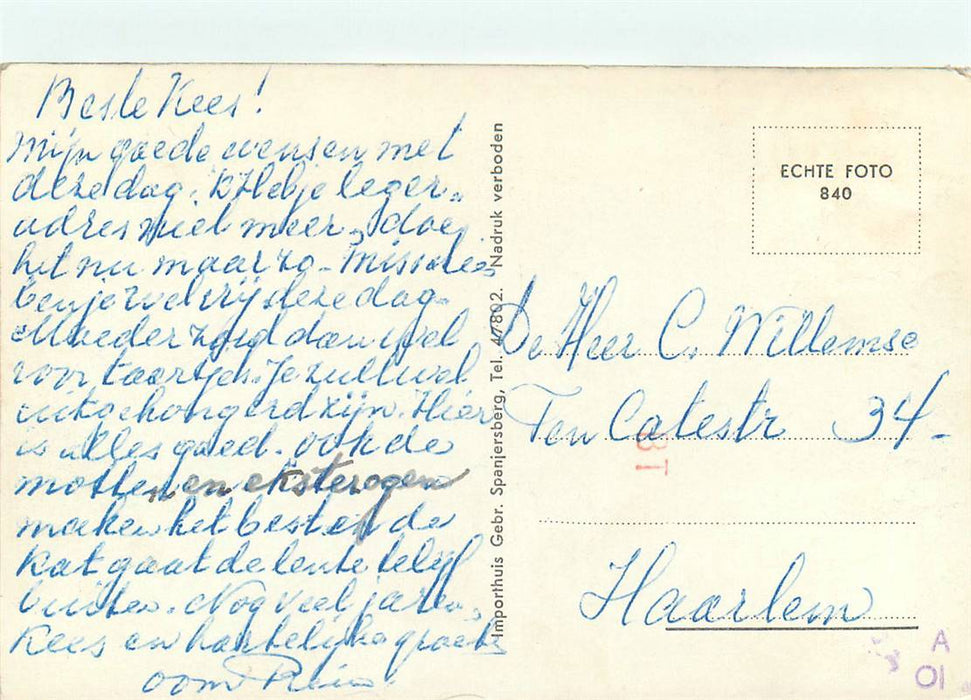 Beste Kees!
Mijn goede wensen met
deze dag. K Heb je leger-
adres niet meer, doe
het nu maar zo - misschien
ben je wel vrij deze dag.
Moeder zorgd dan wel
voor taartjes. Je zult wel
uitgehongerd zijn. Hier
is alles goed. ook de
motten en eksterogen
maken het best en de
Kat gaat de lente
buiten. Nog veel jaren,
Kees en hartelijke groeten
oom Rein.
Importhuis Gebr. Spanjersberg, Tel. 47802. Nadruk verboden
ECHTE FOTO
840
De Heer C. Willemse
Ten Catestr 34-
Haarlem
A
01